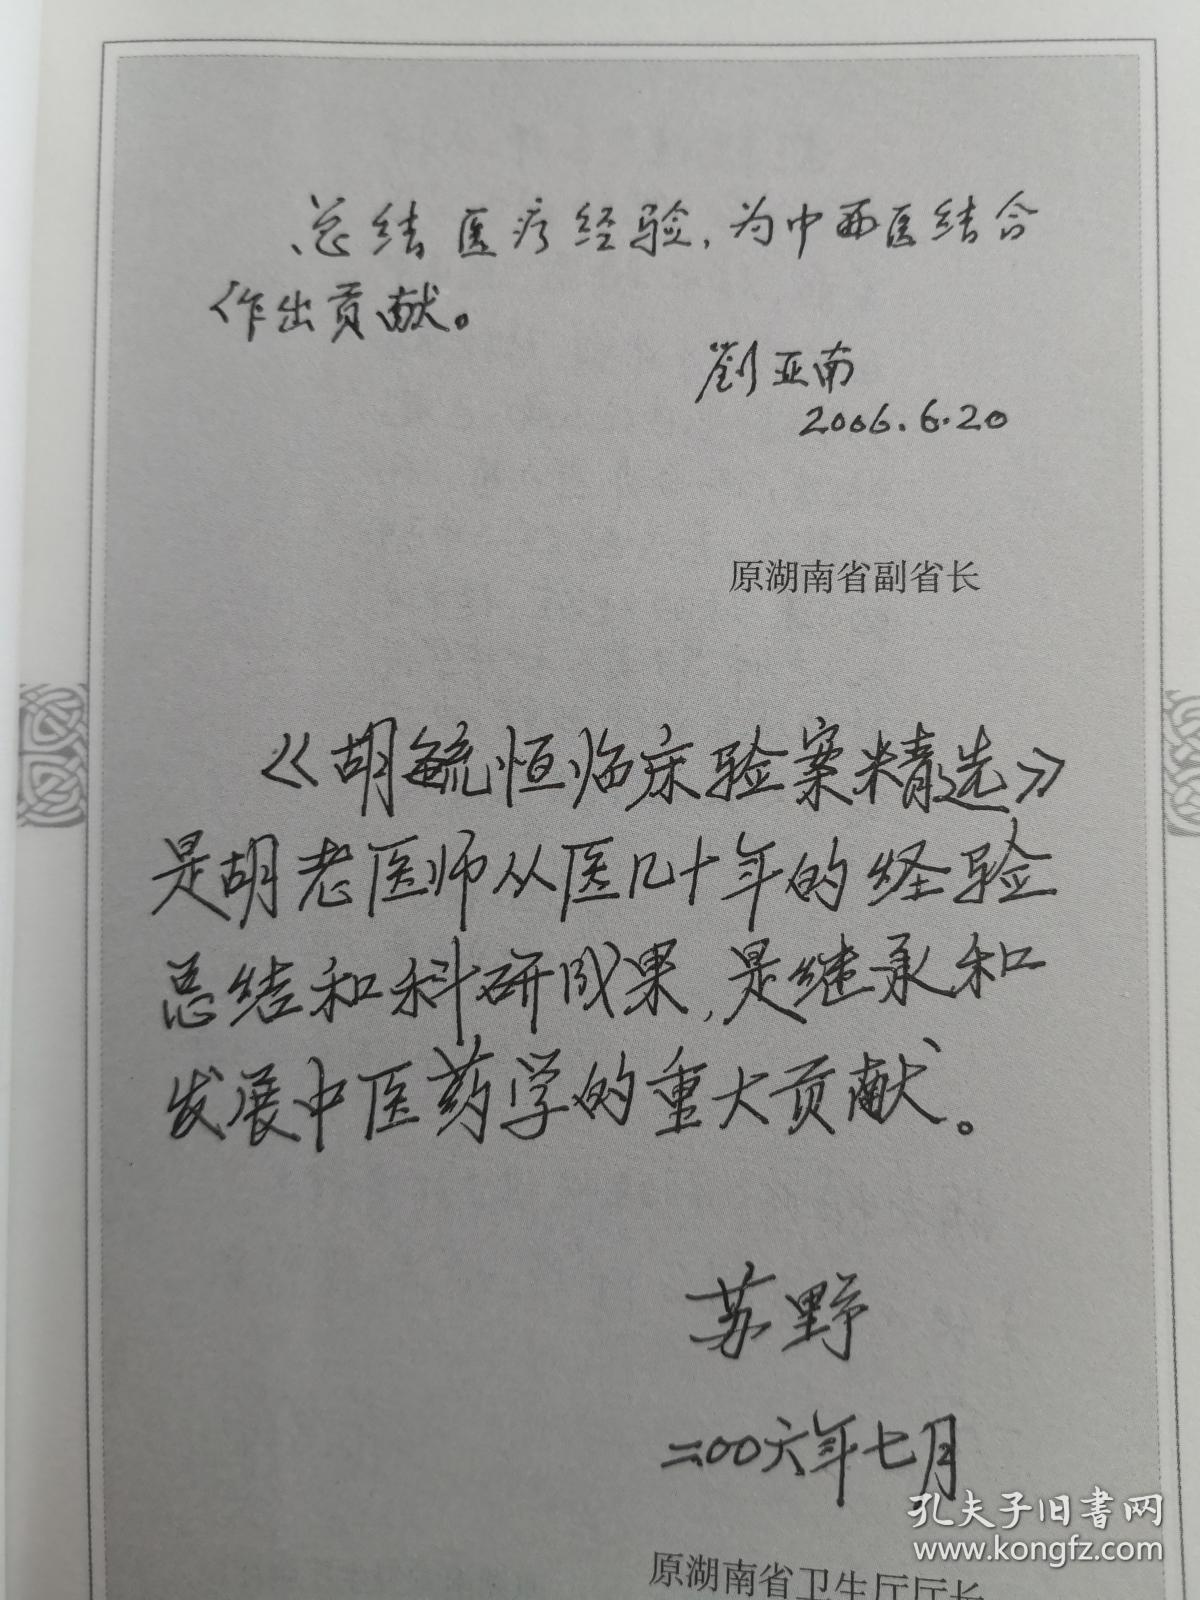 总结医疗经验，为中西医结合
作出贡献。
劉亚南
2006.6.20
原湖南省副省长
《胡毓恒临床验案精选》
是胡老医师从医几十年的经验
总结和科研成果，是继承和
发展中医药学的重大贡献。
苏野
二〇〇六年七月
原湖南省卫生厅厅长
孔夫子旧书网
www.kongfz.com